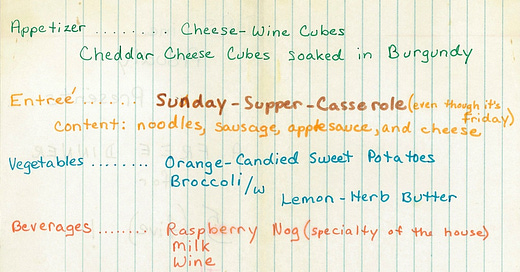 Appetizer ........ Cheese-Wine Cubes
Cheddar Cheese Cubes soaked in Burgundy
Entreé ....... Sunday-Supper-Casserole (even though it's friday)
content: noodles, sausage, applesauce, and cheese
Vegetables ........ Orange-Candied Sweet Potatoes
Broccoli/w
Lemon-Herb Butter
Beverages ....... Raspberry Nog (specialty of the house)
milk
Wine